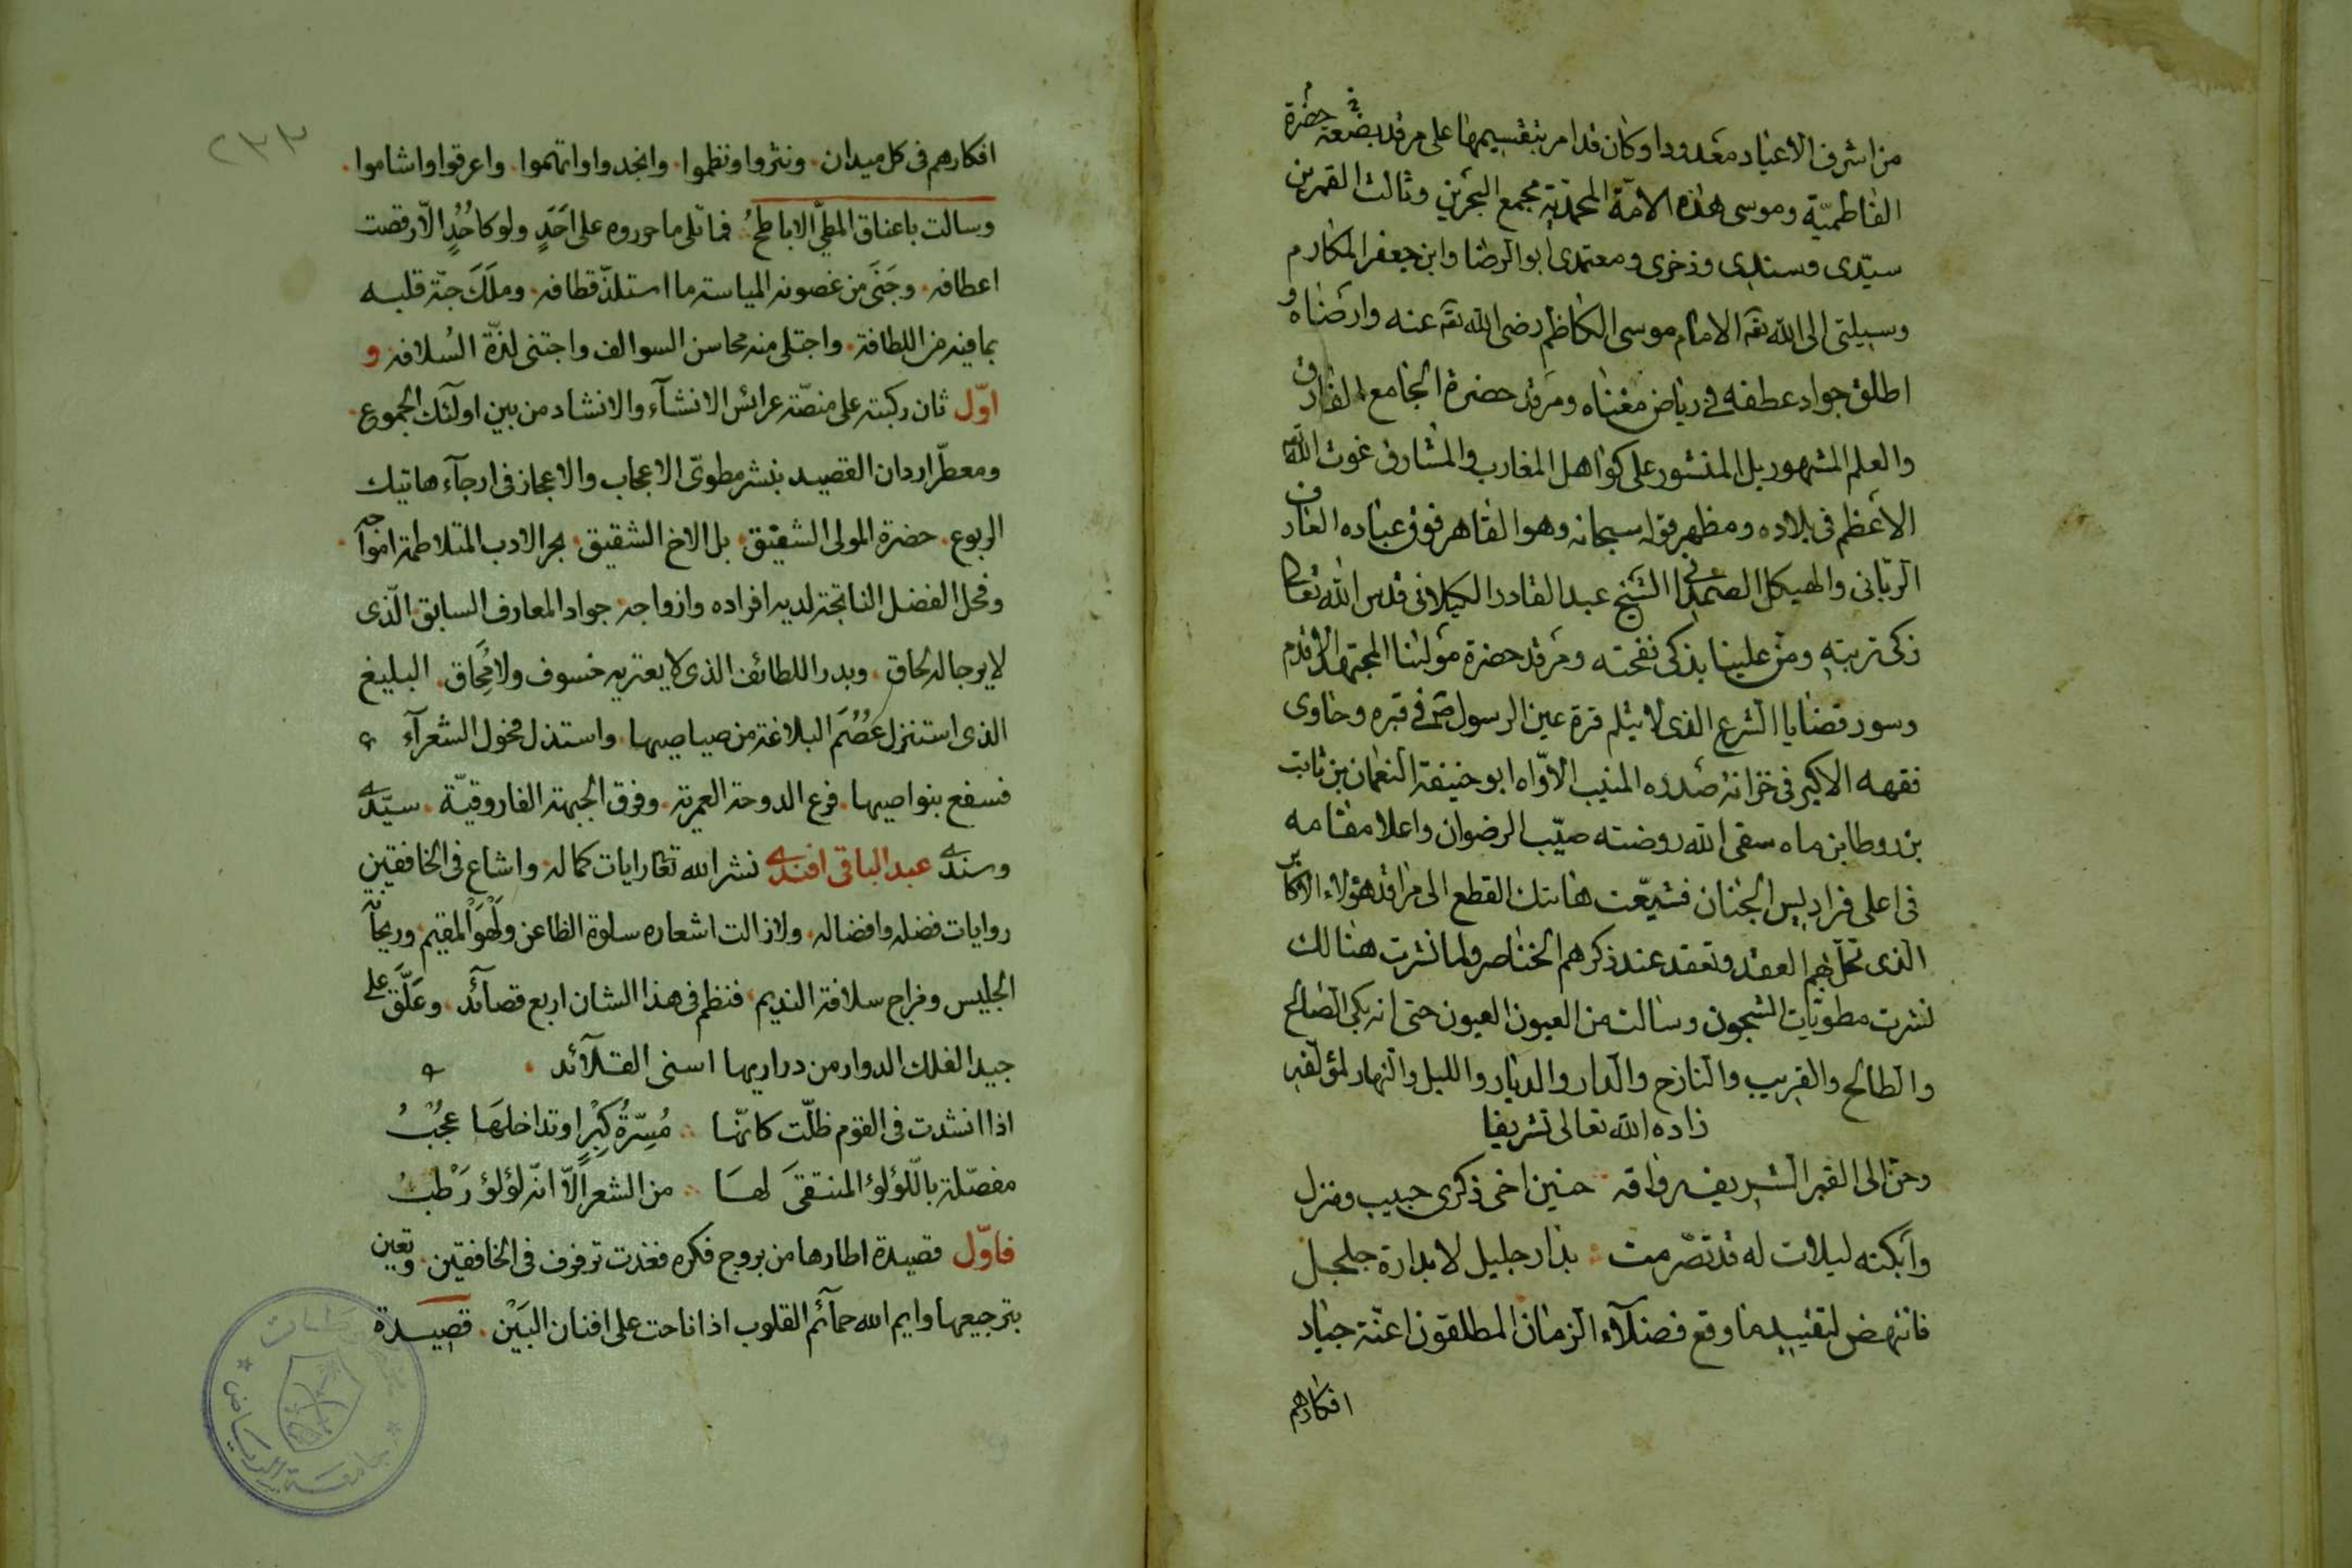 من اشرف الاعياد معدودا وكان قد امر بتقسيمها على مرقد بضعة حضرة
الفاطميّة وموسى هذه الامّة المحمّدية مجمع البحرين وثالث القمرين
سيّدى وسندى وذخرى ومعتمدى ابو الرضا وابن جعفر المكارم
وسيلتى الى الله تقه الامام موسى الكاظم رضى الله تقه عنه وارضاه و
اطلق جواد عطفه في رياض مغناه ومرقد حضرة الجامع الفارق
والعلم المشهور بل المنشور على كواهل المغارب والمشارق غوث الله
الاعظم فى بلاده ومظهر قوله سبحانه وهو القاهر فوق عباده العارف
الربّانى والهيكل الصمدانى الشيخ عبد القادر الكيلانى قدس الله تعالى
زكى تربته ومنّ علينا بذكى نفحته ومرقد حضرة مولينا المجتهد الاقدم
وسور قضايا الشرع الذى لا يثلم قرة عين الرسول صم في قبره وحاوى
فقهه الاكبر فى خزانة صدره المنيب الاوّاه ابو حنيفة النعمان بن ثابت
بن زوطا بن ماه سقى الله روضته صيّب الرضوان واعلا مقامه
فى اعلى فراديس الجنان فشيّعت هاتك القطع الى مراقد هؤلاء الاكابر
الذى تحل بهم العقد وتعقد عند ذكرهم الخناصر ولما نشرت هنالك
نشرت مطويّات الشجون وسالت من العيون العيون حتى انه بكى الصالح
والطالح والقريب والنازح والدار والديار والليل والنهار لمؤلفه
زاده الله تعالى تشريفا
وحنّ الى القبر الشريف رواقه ∴ حنين اخى ذكرى حبيب ومنزل
وابكته ليلات له قد تصّرمت ∴ بدار جليل لا بدارة جلجل
فانتهض لتقييد ما وقع فضلاۤء الزمان المطلقون اعنّة جياد
افكارهم
٢٣٣
افكارهم فى كل ميدان . ونثروا ونظموا . وانجدوا واتهموا . واعرقوا واشاموا .
وسالت باعناق المطىّ الاباطحُ . فما تلى ما حرروه على اَحَدٍ ولو كاُحُدٍ الّا رقصت
اعطافه . وجَنَى من غصونه المياسة ما استلذّ قطافه . وملَكَ حبّة قلبه
بما فيه من اللطافة . واجتلى منه محاسن السوالف واجتنى لذّة السُلافه و
اوّل ثان ركبته على منصّة عرائس الانشاۤء والانشاد من بين اولئك الجموع .
ومعطّر اردان القصيد بنشر مطوىّ الاعجاب والاعجاز فى ارجاۤء هاتيك
الربوع . حضرة المولى الشفيق . بل الاخ الشقيق . بحر الادب المتلاطمة امواجه .
وفحل الفضل الناتجة لديه افراده وازواجه . جواد المعارف السابق الّذى
لا يرجا له لحاق . وبدر اللطائف الذى لا يعتريه خسوف ولا مُحَاق . البليغ
الذى استنزل عُصْمَ البلاغة من صياصيها . واستذل فحول الشعراۤء
فسفع بنواصيها . فرع الدوحة العمرية . وفرق الجبهة الفاروقيّة . سيّدى
وسندى عبد الباقى افندى نشر الله تعالى رايات كماله . واشاع فى الخافقين
روايات فضله وافضاله . ولا زالت اشعاره سلوة الظاعن ولَهْوَ المقيم . وريحانة
الجليس ومزاج سلافة النديم . فنظم فى هذا الشان اربع قصائد . وعَلَّقَ على
جيد الفلك الدوار من دراريها اسنى القلاۤئد .
اذا انشدت فى القوم ظلّت كانّها ∴ مُسِرّةُ كِبْرٍ او تداخلَهَا عُجْبُ
مفصّلة باللّؤلؤ المنتقى لها ∴ من الشعر الّا انّه لؤلؤ رَطْبُ
فاوّل قصيدة اطارها من بروج فكره فغدت ترفرف فى الخافقين . وتعين
بترجيعها وايم الله حماۤئم القلوب اذا ناحت على افنان البَيْن . قصيدة
جامعة الرياض